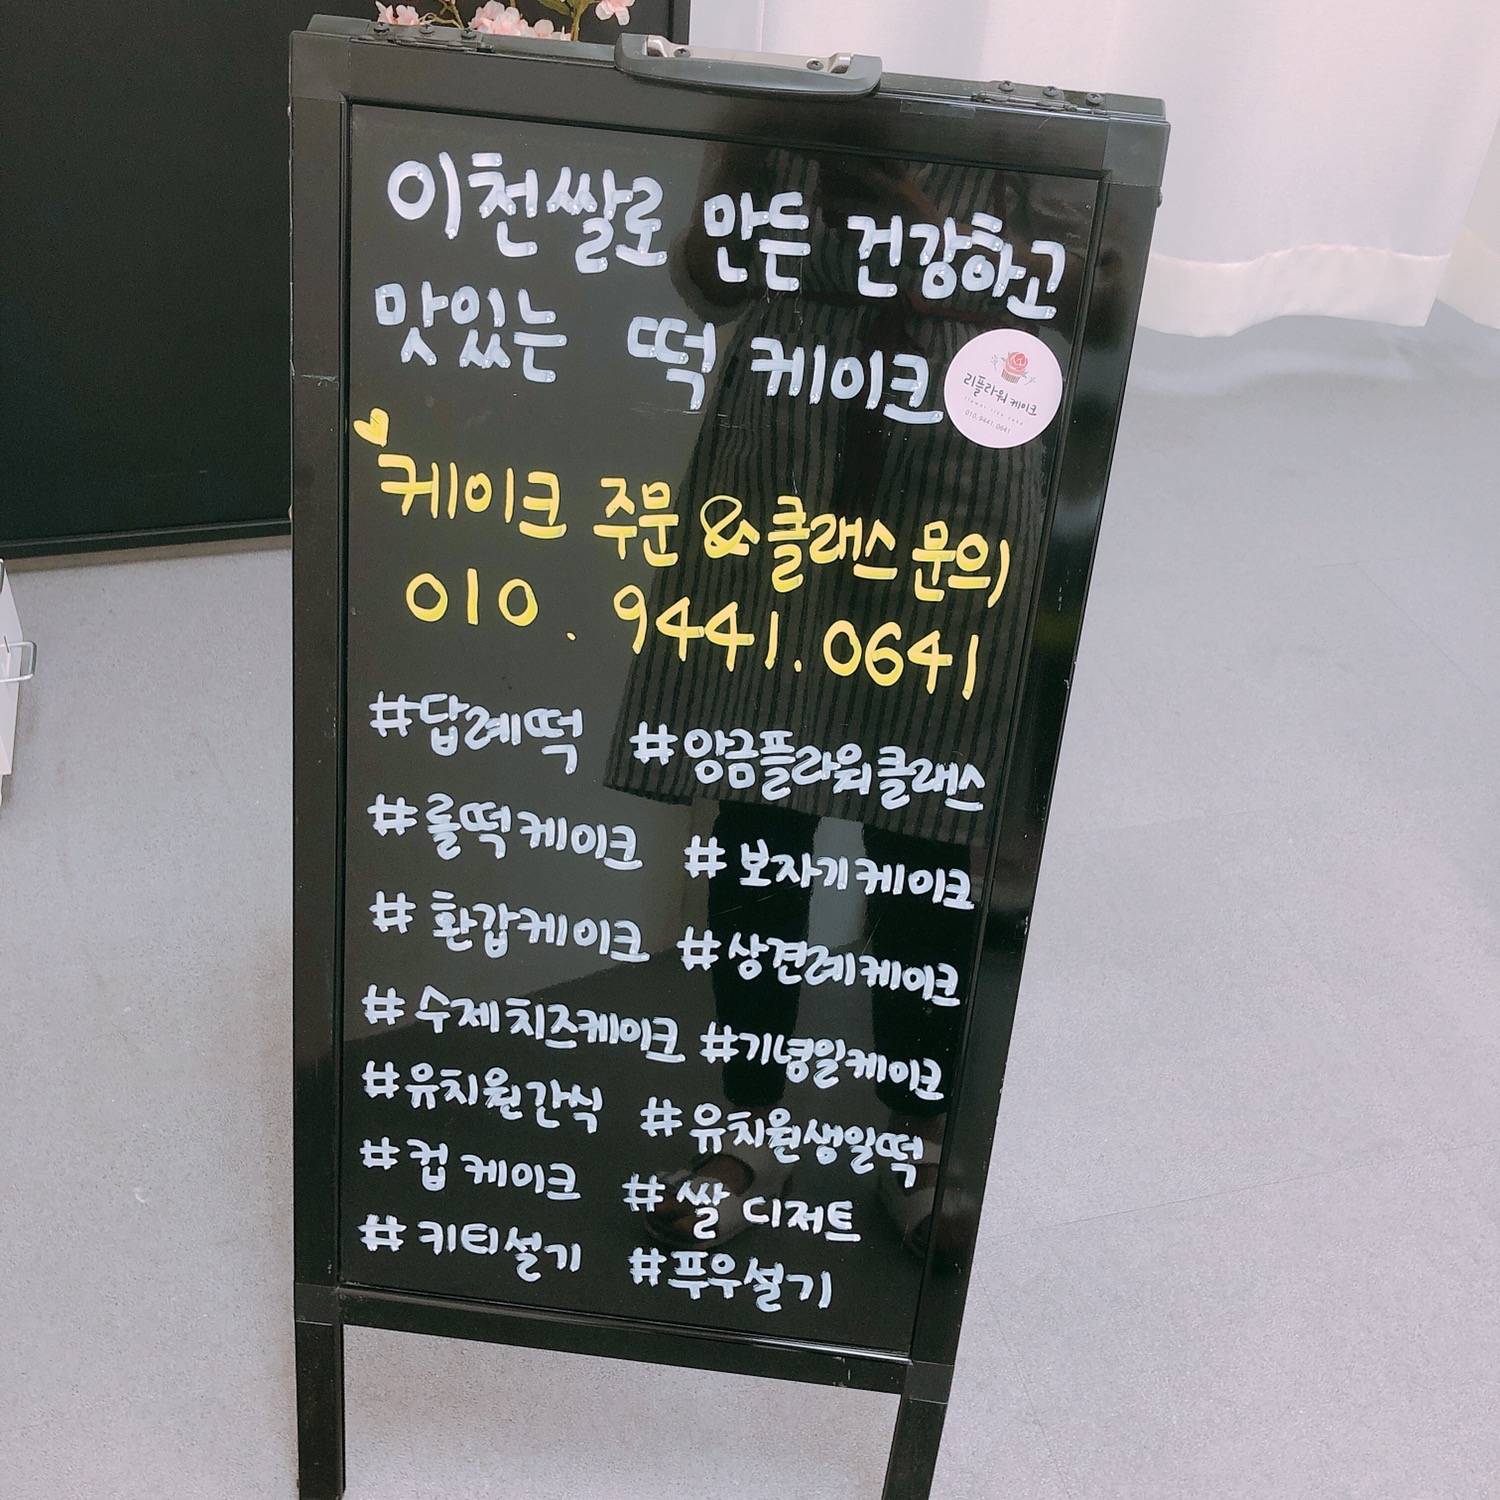 이천쌀로 만든 건강하고
맛있는 떡 케이크
리플라워케이크
flower rice cake
010.9441.0641
케이크 주문 & 클래스 문의
010. 9441. 0641
#답례떡 #앙금플라워클래스
#롤떡케이크 #보자기케이크
#환갑케이크 #상견례케이크
#수제치즈케이크 #기념일케이크
#유치원간식 #유치원생일떡
#컵케이크 #쌀 디저트
#키티설기 #푸우설기